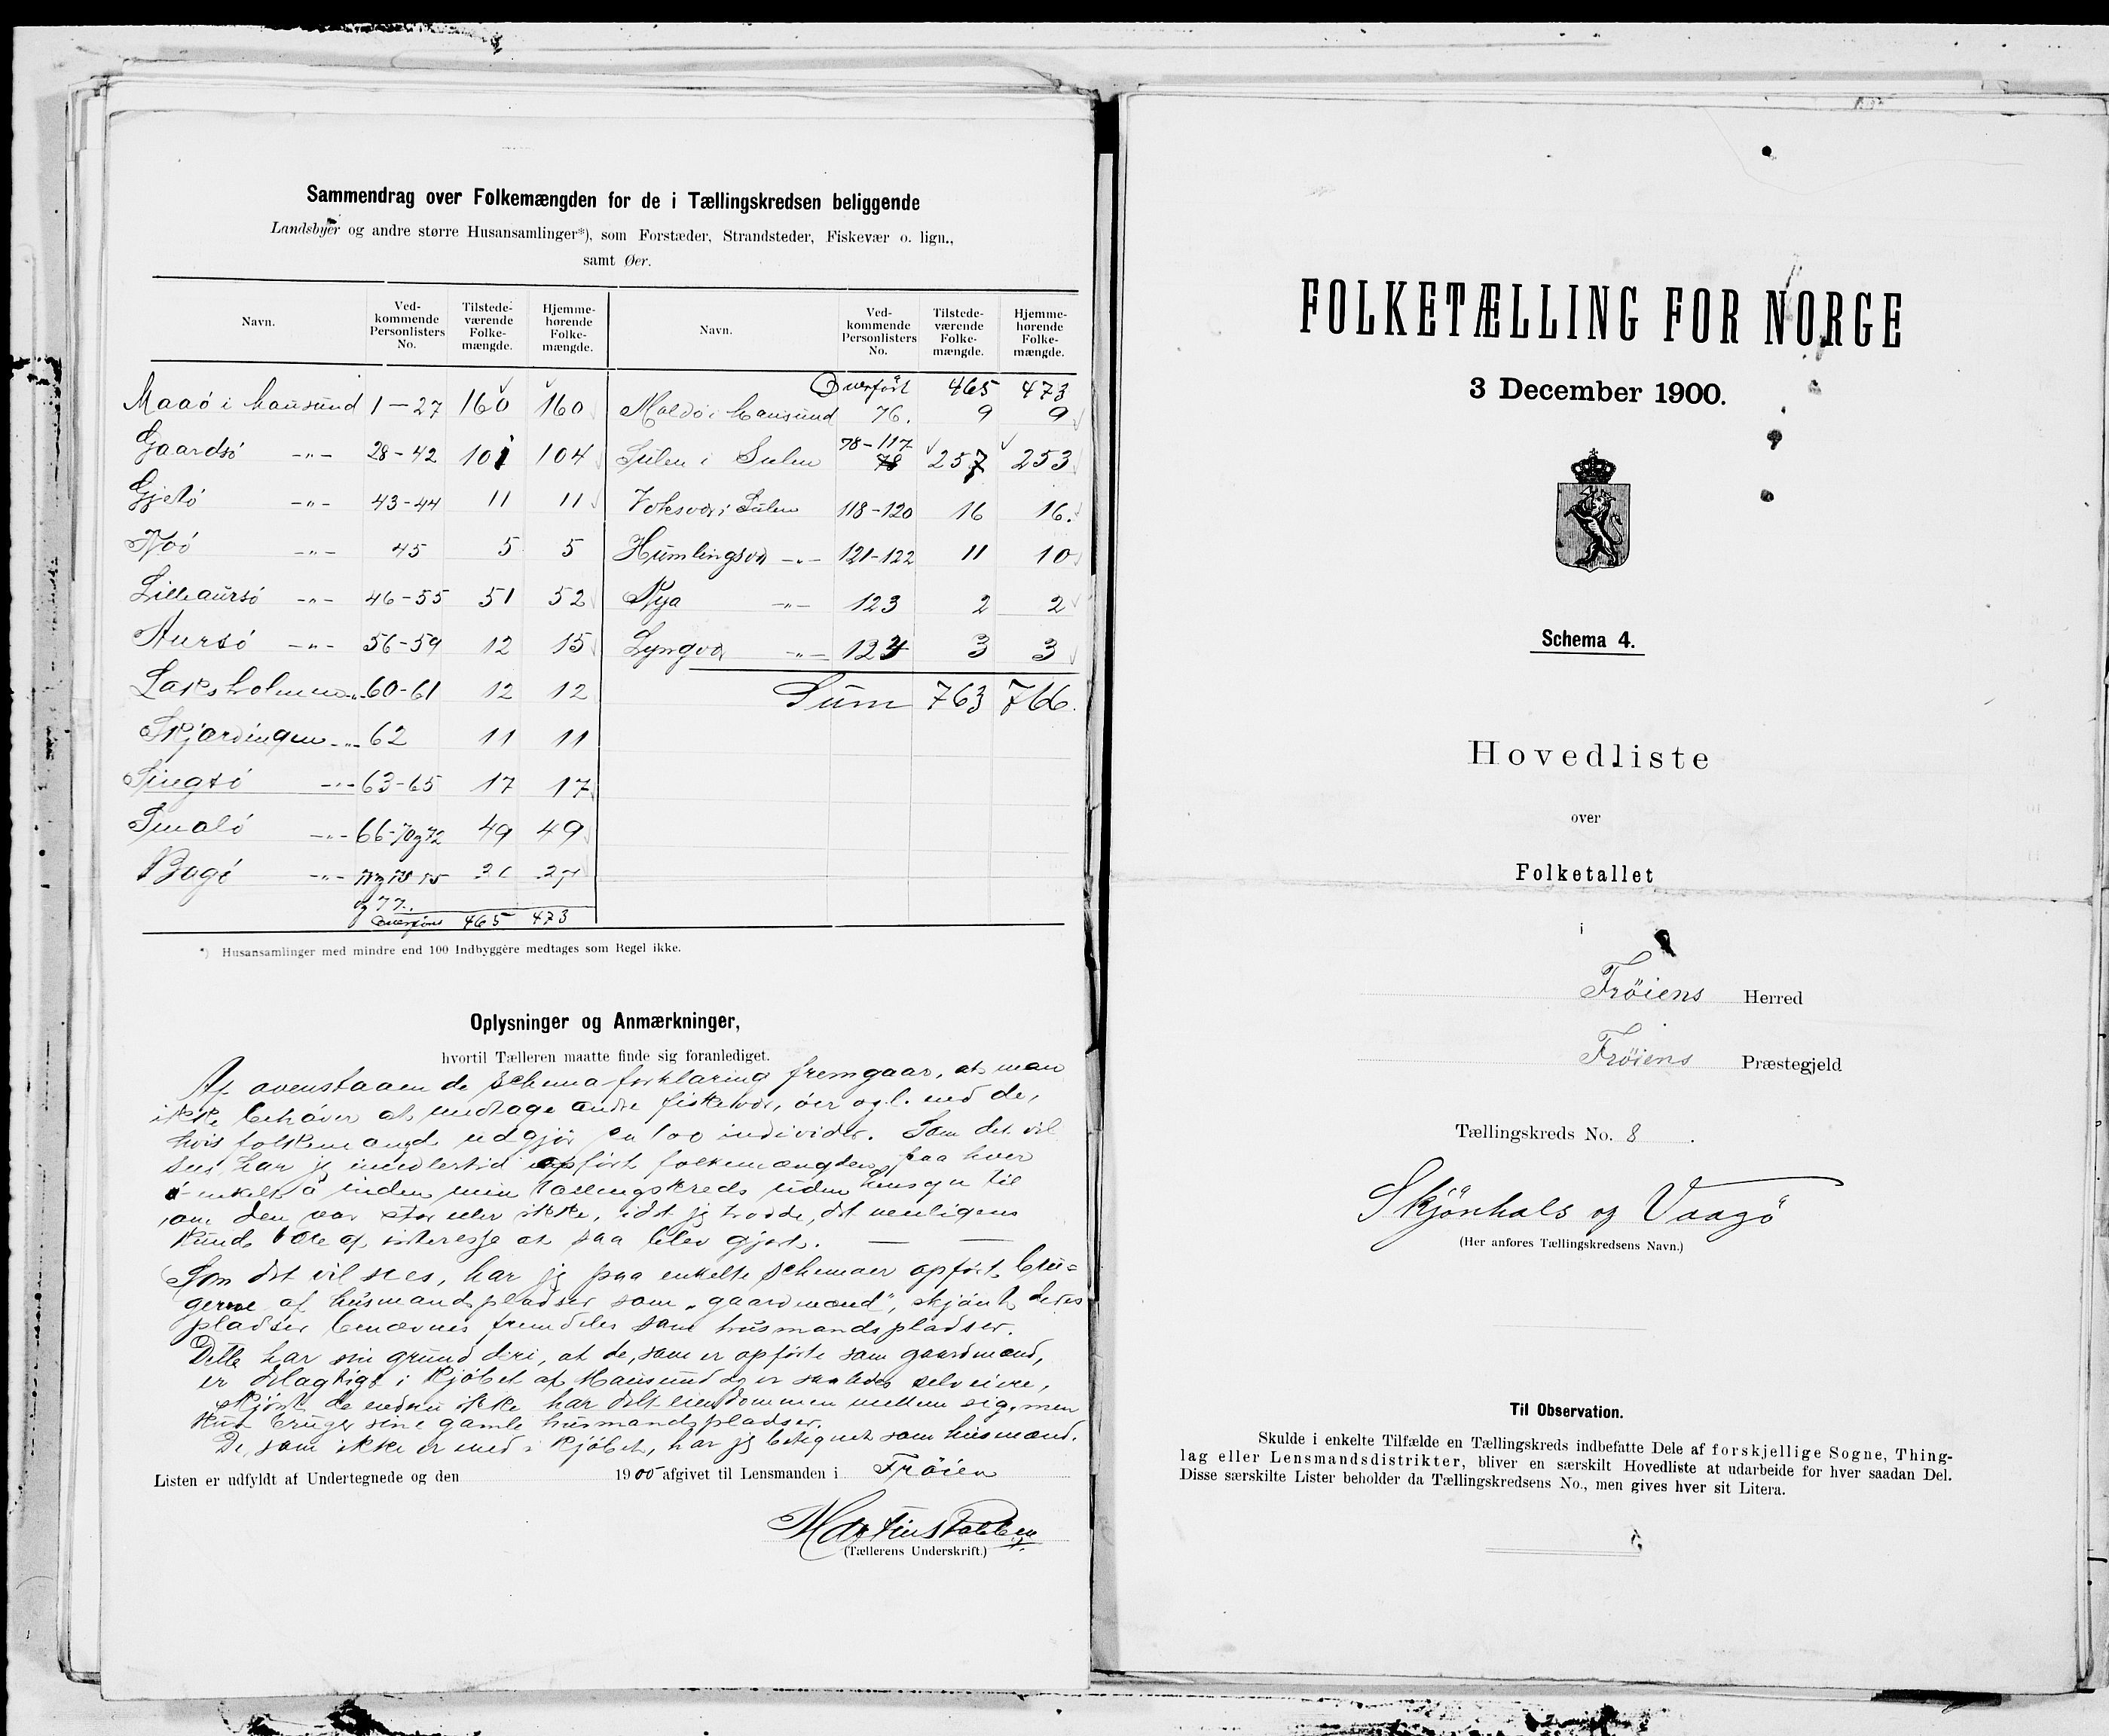 Sammendrag over Folkemængden for de i Tællingskredsen beliggende
Landsbyer og andre større Husansamlinger*), som Forstæder, Strandsteder, Fiskevær o. lign.,
samt Øer.
Navn. Ved-kommende Personlisters No. Tilstede-værende Folke-mængde. Hjemme-hørende Folke-mængde.
Maaö i Mausund 1-27 160 160
Gaardsö -"- 28-42 101 104
Gjetö -"- 43-44 11 11
-"- 45 5 5
Lilleaursö -"- 46-55 51 52
Aursö -"- 56-59 12 15
Laksholmen -"- 60-61 12 12
Skjærdingen -"- 62 11 11
-"- 63-65 17 17
-"- 66-70 og 72 49 49
Bogö -"-
og 77.
Overføres 465 473
Navn. Ved-kommende Personlisters No. Tilstede-værende Folke-mængde. Hjemme-hørende Folke-mængde.
Overfört 465 473
i Mausund 76. 9 9
78-117
Sulen i Sulen 257 253
i Sulen 118-120 16 16.
Humlingsvær -"- 121-122 11 10
-"- 123 2 2
Lyngvær -"- 124 3 3
Sum 763 766.
*) Husansamlinger med mindre end 100 Indbyggere medtages som Regel ikke.
Oplysninger og Anmærkninger,
hvortil Tælleren maatte finde sig foranlediget.
Af ovenstaaende Schemaforklaring fremgaar, at man
ikke behöver at medtage andre fiskevær, öer og l. end de,
hvis folkemængde udgjör 100 individer. Som det vil
sees har jeg imidlertid opfört folkemængden paa hver
enkelt ö inden min tællingskreds uden hensyn til
om den var stor eller ikke, idet jeg trodde, det
kunde være af interesse at saa blev gjort.
Som det vil sees, har jeg paa enkelte Schemaer opfört bru=
gerne af husmandspladser som „gaardmænd", skjönt deres
pladser benævnes fremdeles som husmandspladser.
Dette har sin grund deri, at de, som er opförte som gaardmænd,
er delagtige i kjöbet af Mausund og er saaledes selveiere,
skjönt de endnu ikke har delt eiendommen mellem sig, men
kun bruger sine gamle husmandspladser.
De, som ikke er med i kjöbet, har jeg betegnet som husmænd.
Listen er udfyldt af Undertegnede og den 1900 afgivet til Lensmanden i Fröien
Martinus
(Tællerens Underskrift.)
FOLKETÆLLING FOR NORGE
3 December 1900.
Schema 4.
Hovedliste
over
Folketallet
i
Fröiens Herred
Fröiens Præstegjeld
Tællingskreds No. 8.
Skjönhals og Vaagö
(Her anføres Tællingskredsens Navn.)
Til Observation.
Skulde i enkelte Tilfælde en Tællingskreds indbefatte Dele af forskjellige Sogne, Thing-
lag eller Lensmandsdistrikter, bliver en særskilt Hovedliste at udarbeide for hver saadan Del.
Disse særskilte Lister beholder da Tællingskredsens No., men gives hver sit Litera.